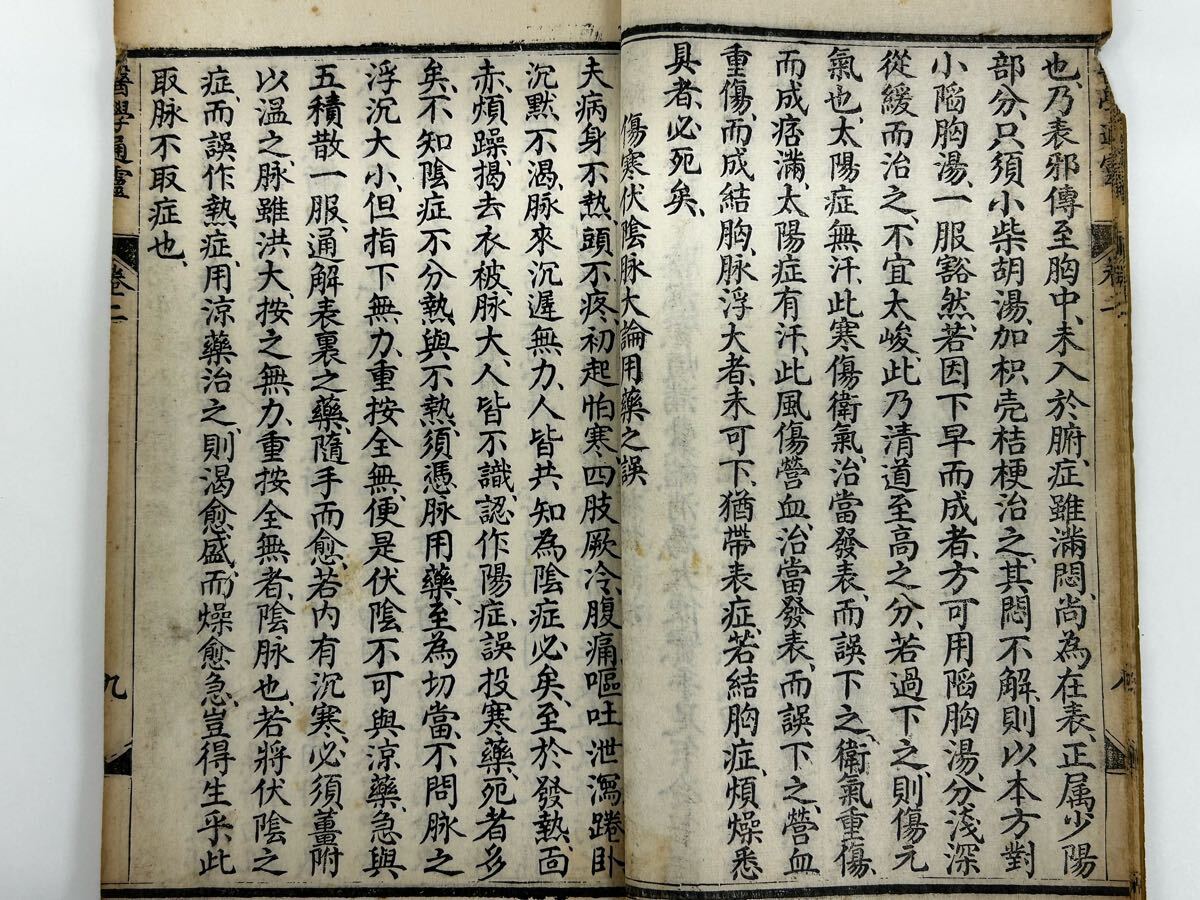 也、乃表邪傳至胸中、未入於腑、症雖滿悶、尚為在表、正属少陽
部分、只須小柴胡湯、加枳壳桔梗治之、其悶不解、則以本方對
小陷胸湯、一服豁然、若因下早而成者、方可用陷胸湯、分淺深
從緩而治之、不宜太峻、此乃清道至高之分、若過下之、則傷元
氣也、太陽症無汗、此寒傷衛氣、治當發表、而誤下之、衛氣重傷、
而成痞滿、太陽症有汗、此風傷營血、治當發表、而誤下之、營血
重傷、而成結胸、脉浮大者、未可下、猶帶表症、若結胸症、煩燥悉
具者、必死矣、
傷寒伏陰脉大論用藥之誤
夫病身不熱、頭不疼、初起怕寒、四肢厥冷、腹痛嘔吐、泄瀉踡卧
沉默不渴、脉來沉遲無力、人皆共知為陰症必矣、至於發熱面
赤、煩躁、揭去衣被、脉大、人皆不識、認作陽症、誤投寒藥、死者多
矣、不知陰症不分熱與不熱、須憑脉用藥、至為切當、不問脉之
浮沉大小、但指下無力、重按全無、便是伏陰、不可與涼藥、急與
五積散一服、通解表裏之藥、隨手而愈、若內有沉寒、必須薑附
以溫之、脉雖洪大、按之無力、重按全無者、陰脉也、若將伏陰之
症、而誤作熱症、用涼藥治之、則渴愈盛、而燥愈急、豈得生乎、此
取脉不取症也、
醫學通靈
卷二
九